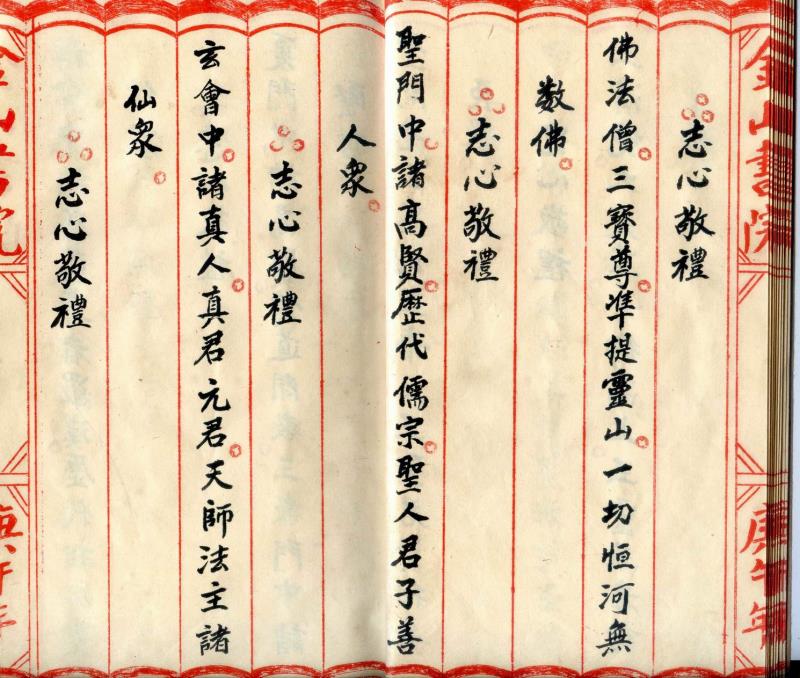 金山書院
庚午年
志心敬禮
佛法僧三寶尊準提靈山一切恒河無
数佛
志心敬禮
聖門中諸高賢歷代儒宗聖人君子善
人衆
志心敬禮
玄會中諸真人真君元君天師法主諸
仙衆
志心敬禮
金山書院
庚午年